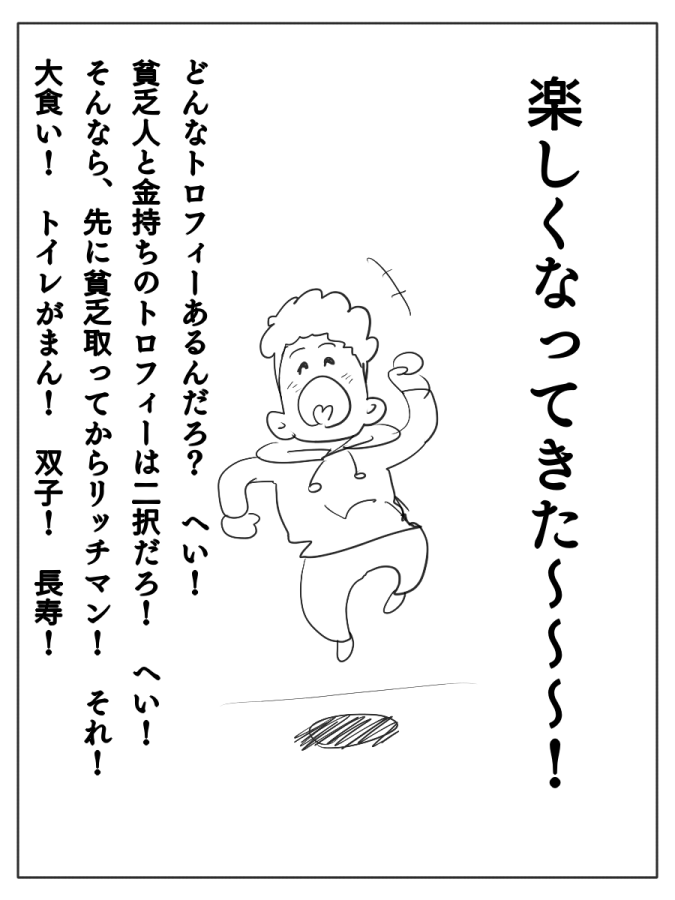 楽しくなってきた～～～～！
どんなトロフィーあるんだろ？　へい！
貧乏人と金持ちのトロフィーは二択だろ！　へい！
そんなら、先に貧乏取ってからリッチマン！　それ！
大食い！　トイレがまん！　双子！　長寿！